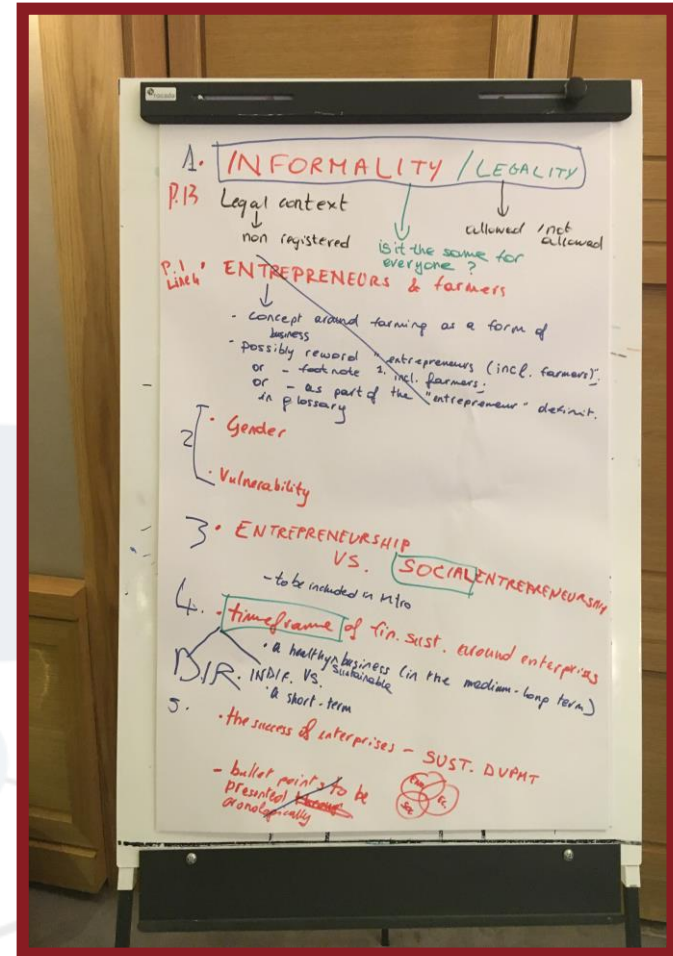 nocado
1. INFORMALITY / LEGALITY
P.13 Legal context
non registered
is it the same for
everyone ?
allowed / not
allowed
P.1
Line 4
ENTREPRENEURS & farmers
- concept around farming as a form of
business
- possibly reword "entrepreneurs (incl. farmers)".
or - footnote 1. incl. farmers.
or - as part of the "entrepreneur" definit.
in glossary
2
· Gender
· Vulnerability
3. · ENTREPRENEURSHIP
VS. SOCIAL ENTREPRENEURSHIP
- to be included in intro
4. · timeframe of fin. sust. around enterprises
· a healthy business (in the medium-long term)
sustainable
DIR. INDIR. VS.
· a short-term
5.
· the success of enterprises - SUST. DVPMT
- bullet points to be
presented
cronologically
Env
Soc
Ec.